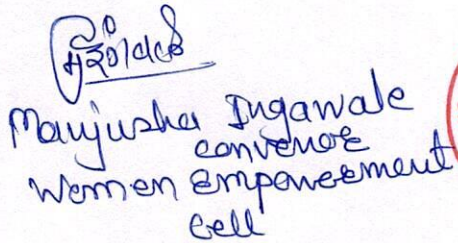 Manjusha Ingawale
convenor
Women Empowerment
Cell